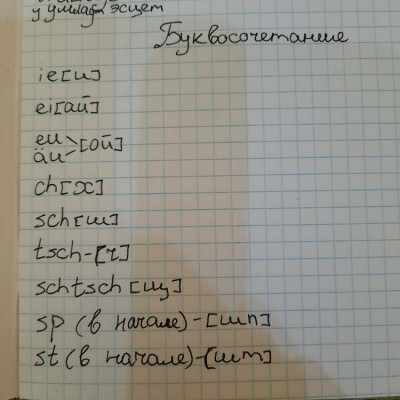 у умлаут эсцет
Буквосочетание
ie[и]
ei[ай]
eu
äu >[ой]
ch[х]
sch[ш]
tsch-[ч]
schtsch [щ]
sp (в начале)-[шп]
st (в начале)-[шт]